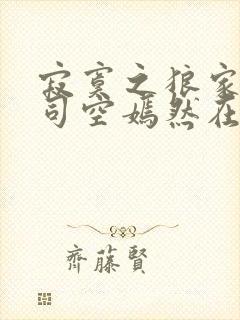 寂寞之狼家
司空嫣然在
齊藤賢